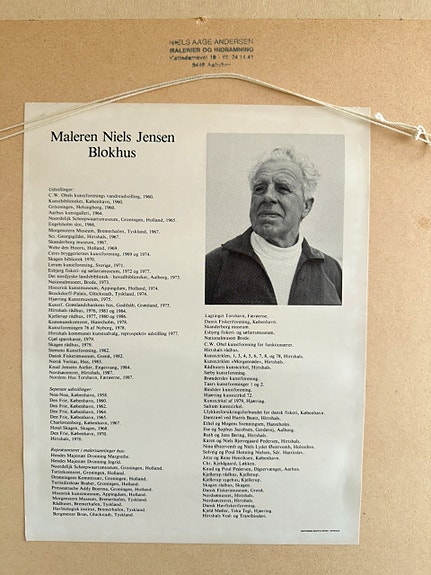 NIELS AAGE ANDERSEN
MALERIER OG INDRAMNING
Maleren Niels Jensen
Blokhus
Udstillinger:
C.W. Obels kunstforenings vandreudstilling, 1960.
Kunstbiblioteket, København, 1960.
Grönningen, Helsingborg, 1960.
Aarhus kunstgalleri, 1964.
Noordelijk Scheepvaartmuseum, Groningen, Holland, 1965.
Engelsholm slot, 1966.
Morgenstern Museum, Bremerhafen, Tyskland, 1967.
Sct. Georgsgildet, Hirtshals, 1967.
Skanderborg museum, 1967.
Wehe den Hoorn, Holland, 1969.
Ceres bryggeriernes kunstforening, 1969 og 1974.
Skagen bibliotek 1970.
Lerum kunstforening, Sverige, 1971.
Esbjerg fiskeri- og søfartsmuseum, 1972 og 1977.
Det nordjyske landsbibliotek - hovedbiblioteket, Aalborg, 1973.
Nationalmuseet, Brede, 1973.
Historisk kunstmuseum, Appingedam, Holland, 1974.
Brockdorff-Palais, Glückstadt, Tyskland, 1974.
Hjørring Kunstmuseum, 1975.
Kunstf. Grønlandsbankens hus, Godthåb, Grønland, 1975.
Hirtshals rådhus, 1976, 1981 og 1984.
Kjellerup rådhus, 1977, 1980 og 1986.
Kommunekontoret, Hanstholm, 1978.
Kunstforeningen 78 af Nyborg, 1978.
Hirtshals kommunes kunstudvalg, retrospektiv udstilling 1977.
Gjøl sparekasse, 1979.
Skagen rådhus, 1979.
Siemens Kunstforening, 1982.
Dansk Fiskerimuseum, Grenå, 1982.
Norsk Veritas, Hus, 1983.
Knud Jensens Atelier, Engesvang, 1984.
Nordsømuseet, Hirtshals, 1987.
Nordens Hus Torshavn, Færøerne, 1987.
Separate udstillinger:
Nou-Nou, København, 1958.
Den Frie, København, 1960.
Den Frie, København, 1962.
Den Frie, København, 1964.
Den Frie, København, 1965.
Charlottenborg, København, 1967.
Hotel Skagen, Skagen, 1968.
Den Frie, København, 1970.
Hirtshals, 1970.
Repræsenteret i malerisamlinger hos:
Hendes Majestæt Dronning Margrethe.
Hendes Majestæt Dronning Ingrid.
Noordelijk Scheepvaartsmuseum, Groningen, Holland.
Groningen, Holland.
Groningen, Holland.
Groningen, Holland.
Groningen, Holland.
Historisk kunstmuseum, Appingedam, Holland.
Morgenstern Museum, Bremerhafen, Tyskland.
Rådhuset, Bremerhafen, Tyskland.
Havbiologisk institut, Bremerhafen, Tyskland.
Glückstadt, Tyskland.
Lagtinget Torshavn, Færøerne.
Dansk Fiskeriforening, København.
Skanderborg museum.
Esbjerg fiskeri- og søfartsmuseum.
Nationalmuseet Brede.
C.W. Obel kunstforening for funktionærer.
Hirtshals rådhus.
Kunstcirklen, 1, 3, 4, 5, 6, 7, 8, og 78, Hirtshals.
Kunstcirklen »Morgenrøden«, Hirtshals.
Rådhusets kunstforening, Hirtshals.
Sæby kunstforening.
Brønderslev kunstforening.
Taars kunstforeninger 1 og 2.
Bindslev kunstforening.
Hjørring kunstcirkel 72.
Kunstcirkel af 1979, Hjørring.
Saltum kunstcirkel.
Ulykkesforsikringsforbundet for dansk fiskeri, København.
ved Harris Benty, Hirtshals.
Ethel og Mogens Svenningsen, Hanstholm.
Ase og Sophus Jacobsen, Aalborg.
Ruth og Jens Børing, Hirtshals.
Karen og Niels Bjerregaard Pedersen, Hirtshals.
Nina Østervemb og Niels Lyder Østervemb, Holstebro.
Solveig og Poul Henning Nielsen, Hirtshals.
Jutte og Rene Henriksen, København.
Chr. Kjeldgaard, Løkken.
Knud og Poul Pedersen, Aarhus.
Kjellerup rådhus, Kjellerup.
Kjellerup sygehus, Kjellerup.
Skagen rådhus, Skagen.
Dansk Fiskerimuseum, Grenå.
Nordsømuseet, Hirtshals.
Nordsøcentret, Hirtshals.
Dansk Havfiskeriforening.
Kjeld Møller, Toka Tagl, Hjørring.
Hirtshals Vod- og Trawlbinderi.